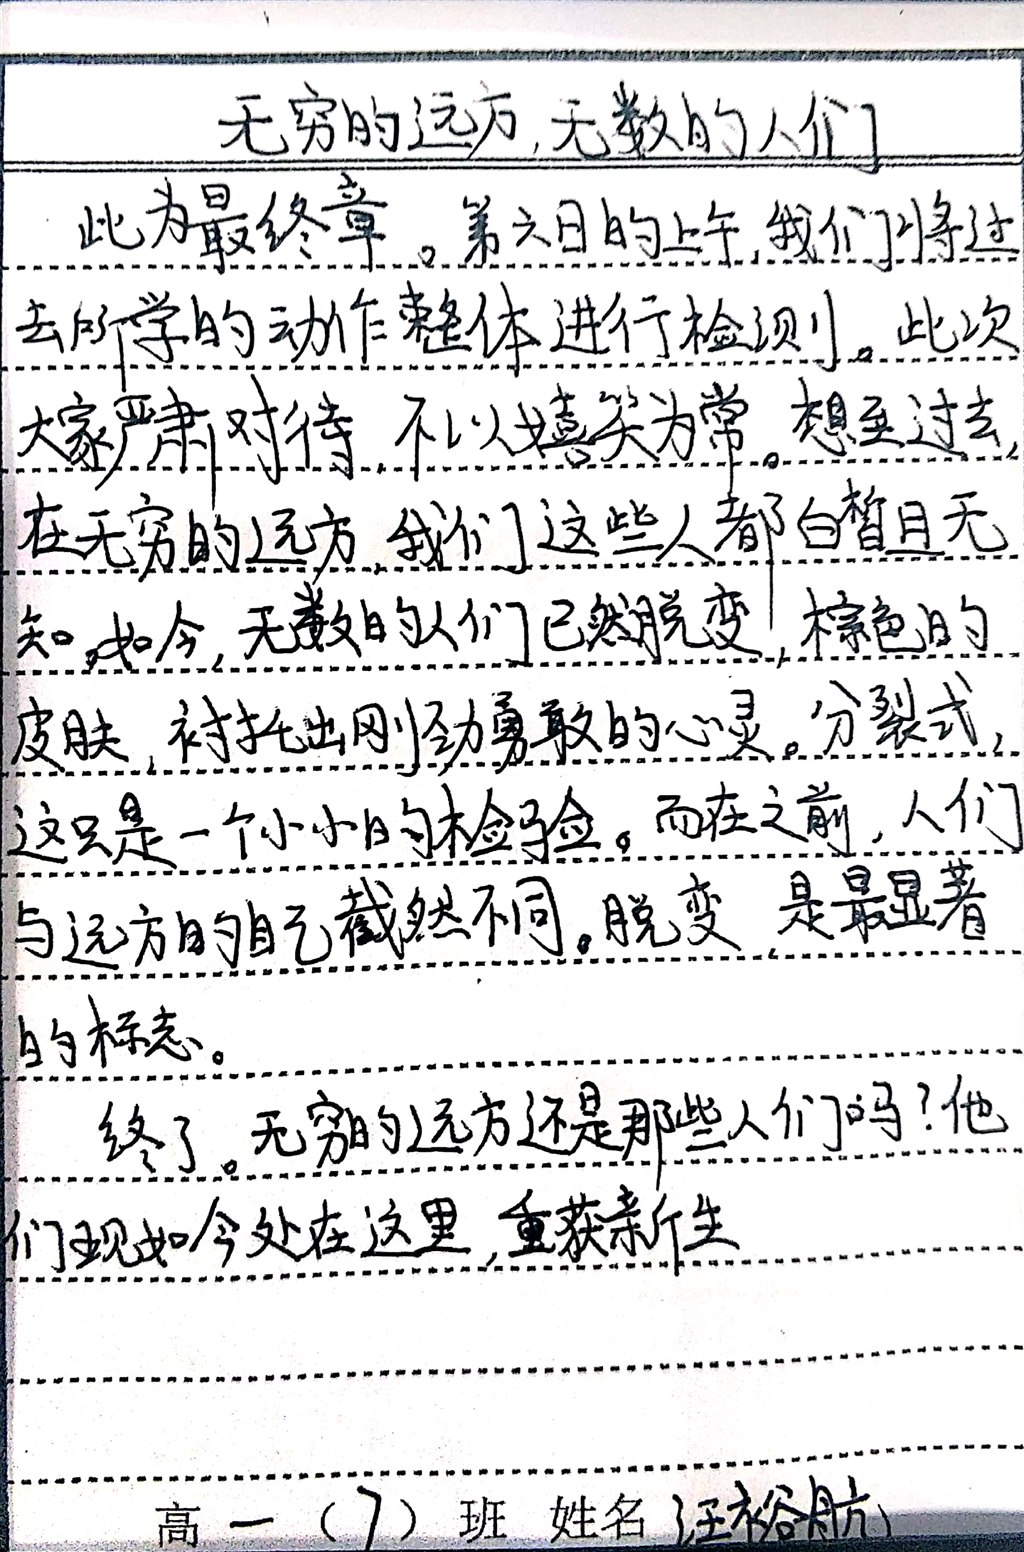 无穷的远方,无数的人们
此为最终章。第六日的上午,我们将过
去所学的动作整体进行检测。此次
大家严肃对待,不以嘻笑为常。想至过去,
在无穷的远方,我们这些人都白皙且无
知。如今,无数的人们已然脱变,棕色的
皮肤,衬托出刚劲勇敢的心灵。分裂式,
这只是一个小小的检验。而在之前,人们
与远方的自己截然不同。脱变,是最显著
的标志。
终了。无穷的远方还是那些人们吗?他
们现如今处在这里,重获新生
高一(7)班 姓名 汪裕航